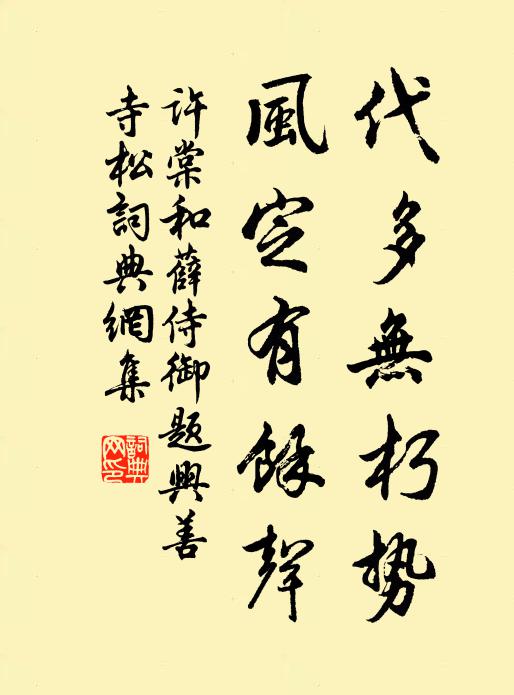 代多無朽勢
風定有餘聲
許棠和薛侍御題興善
寺松詞典網集
詞典網印